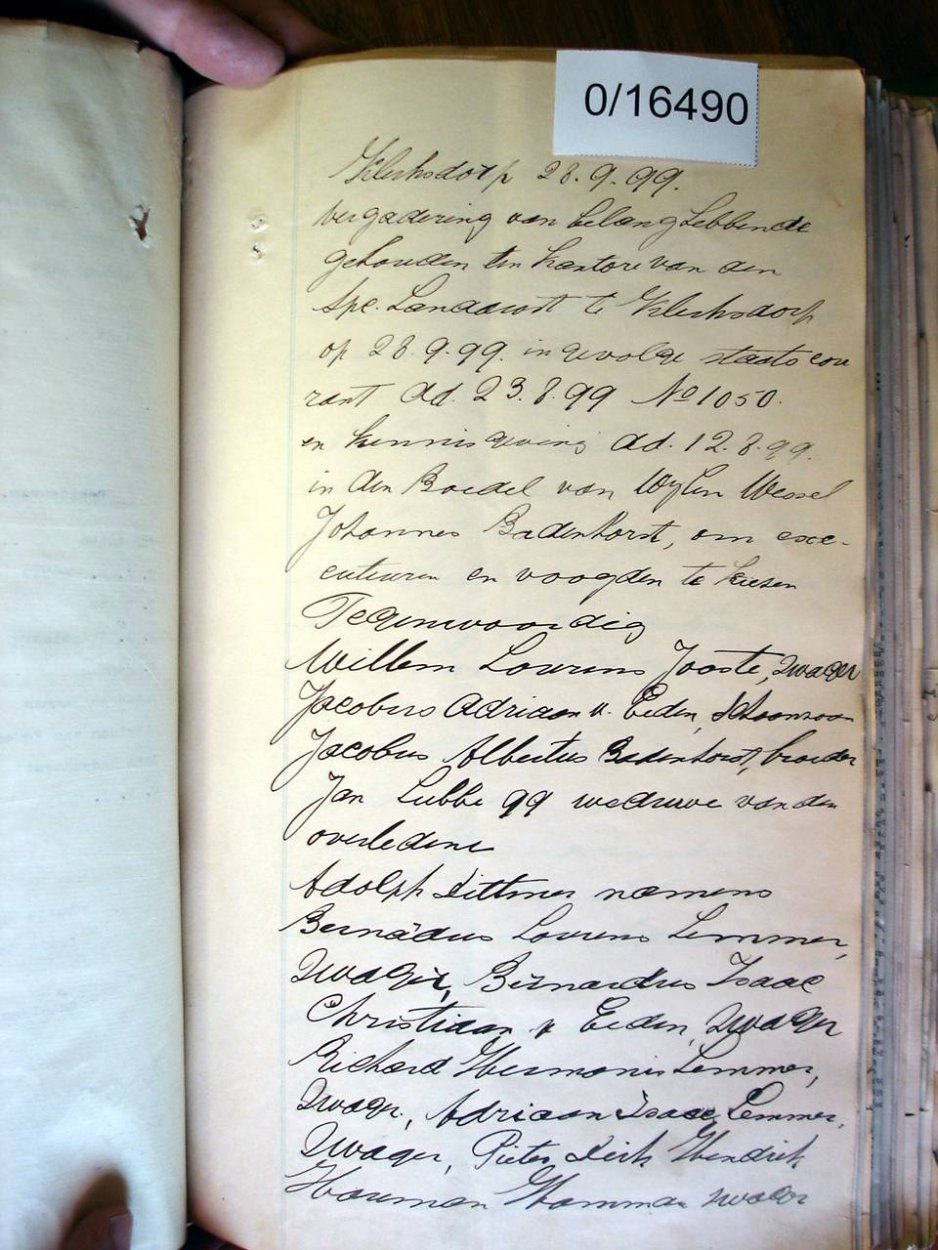 0/16490
Klerksdorp 28.9.99.
Vergadering van belanghebbende
gehouden ten kantore van den
Spe. Landdrost te Klerksdorp
op 28.9.99. in gevolge staats cou
rant dd. 23.8.99 No 1050.
en kennisgeving dd. 12.8.99.
in den Boedel van Wylen Wessel
Johannes Badenhorst, om exe-
cuteuren en voogden te kiesen
Tegenwoordig
Willem Lourens Jooste, zwager
Jacobus Adriaan v. Eeden, Schoonzoon
Jacobus Albertus Badenhorst, broeder
Jan Lubbe qq weduwe van den
overledene
Adolph Dittmer namens
Bernadus Lourens Lemmer,
zwager, Bernardus Isaac
Christiaan v Eeden, zwager
Richard Hermanis Lemmer,
zwager, Adriaan Isaac Lemmer,
zwager, Pieter Dirk Hendrik
Hamman zwager